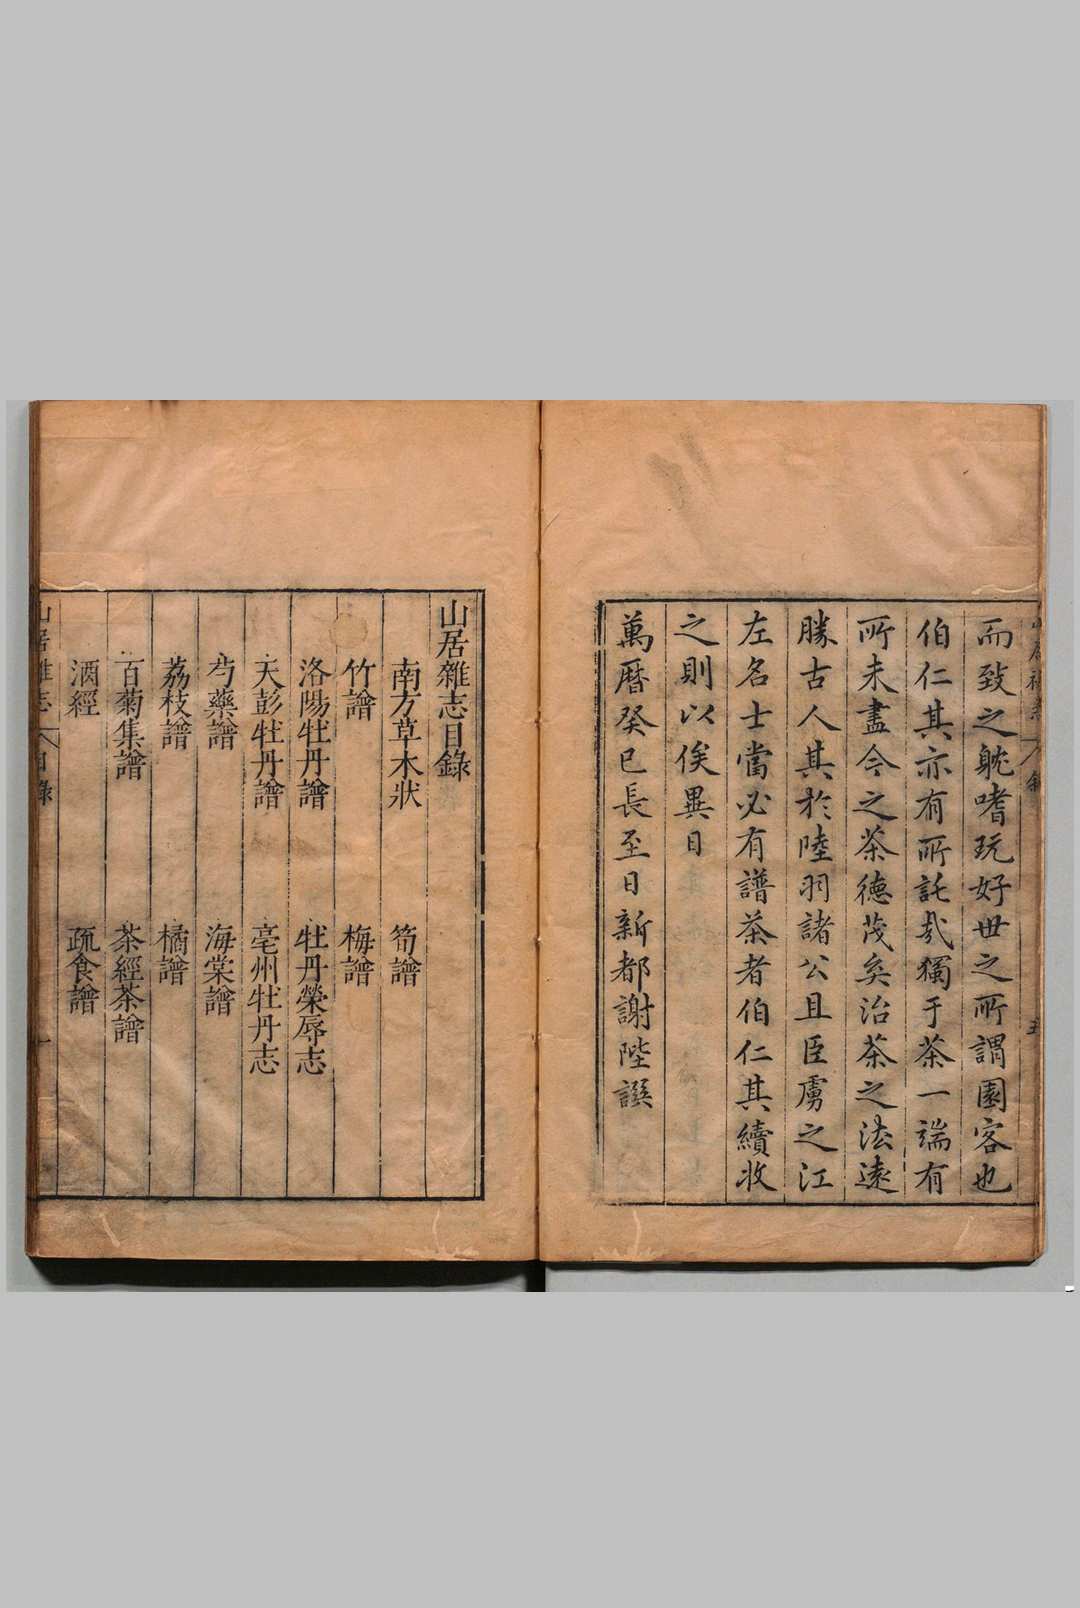 而致之躭嗜玩好世之所謂園客也
伯仁其亦有所託哉獨于茶一端有
所未盡今之茶德茂矣治茶之法遠
勝古人其於陸羽諸公且臣虜之江
左名士當必有譜茶者伯仁其續收
之則以俟異日
萬曆癸巳長至日新都謝陛譔
山居雜志目錄
南方草木狀 筍譜
竹譜 梅譜
洛陽牡丹譜 牡丹榮辱志
天彭牡丹譜 亳州牡丹志
芍藥譜 海棠譜
荔枝譜 橘譜
百菊集譜 茶經茶譜
酒經 蔬食譜
山居雜志 目錄 一